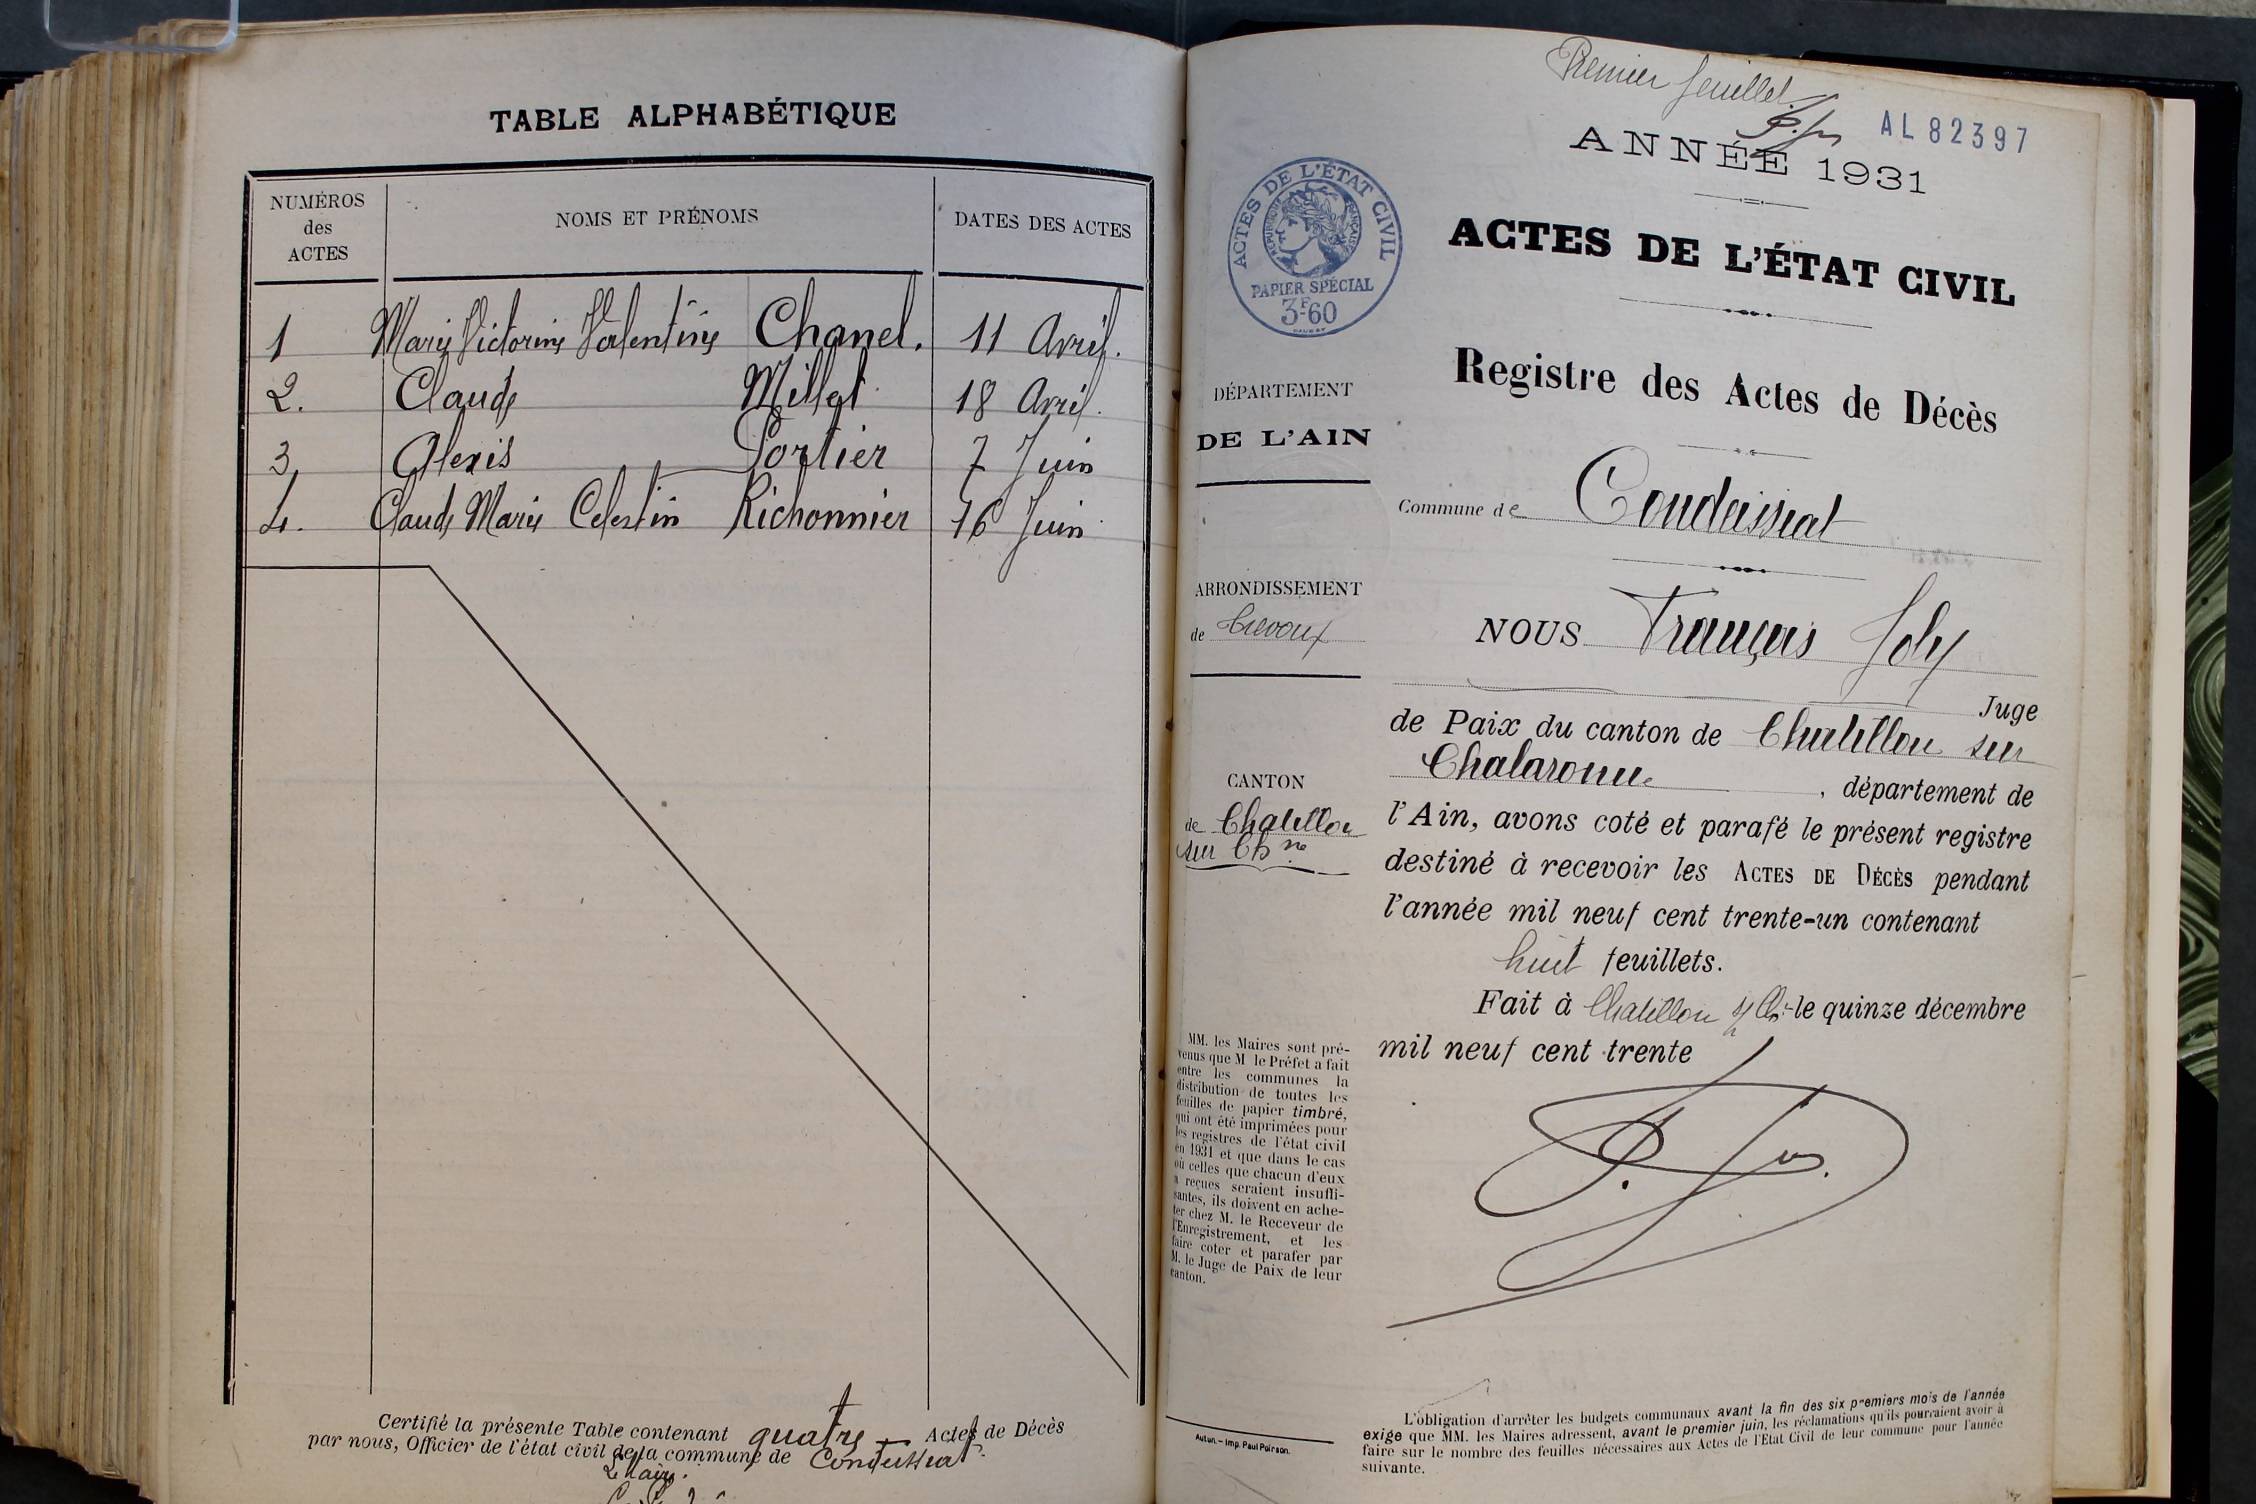 TABLE ALPHABÉTIQUE
NUMÉROS
des
ACTES
NOMS ET PRÉNOMS
DATES DES ACTES
1 Marie Victorine Valentine Chanel. 11 Avril.
2. Claude Millet 18 Avril.
3 Alexis Portier 7 Juin
4. Claude Marie Celestin Richonnier 16 Juin
Certifié la présente Table contenant quatre Actes de Décès
par nous, Officier de l'état civil de la commune de Condeissiat.
Premier feuillet
AL 82397
ANNÉE 1931
ACTES DE L'ÉTAT CIVIL
RÉPUBLIQUE FRANÇAISE
PAPIER SPÉCIAL
3F60
ACTES DE L'ÉTAT CIVIL
Registre des Actes de Décès
DÉPARTEMENT
DE L'AIN
Commune de Condeissiat
ARRONDISSEMENT
de Trevoux
NOUS François Joly
Juge
de Paix du canton de Chatillon sur
Chalaronne, département de
l'Ain, avons coté et parafé le présent registre
destiné à recevoir les ACTES DE DÉCÈS pendant
l'année mil neuf cent trente-un contenant
huit feuillets.
Fait à Chatillon s/ Ch. le quinze décembre
mil neuf cent trente
CANTON
de Chatillon
sur Chne
MM. les Maires sont pré-
venus que M le Préfet a fait
entre les communes la
distribution de toutes les
feuilles de papier timbré,
qui ont été imprimées pour
les registres de l'état civil
en 1931 et que dans le cas
où celles que chacun d'eux
a reçues seraient insuffi-
santes, ils doivent en ache-
ter chez M. le Receveur de
l'Enregistrement, et les
faire coter et parafer par
M. le Juge de Paix de leur
canton.
Autun. – Imp. Paul Poirson.
L'obligation d'arrêter les budgets communaux avant la fin des six premiers mois de l'année
exige que MM. les Maires adressent, avant le premier juin, les réclamations qu'ils pourraient avoir à
faire sur le nombre des feuilles nécessaires aux Actes de l'Etat Civil de leur commune pour l'année
suivante.